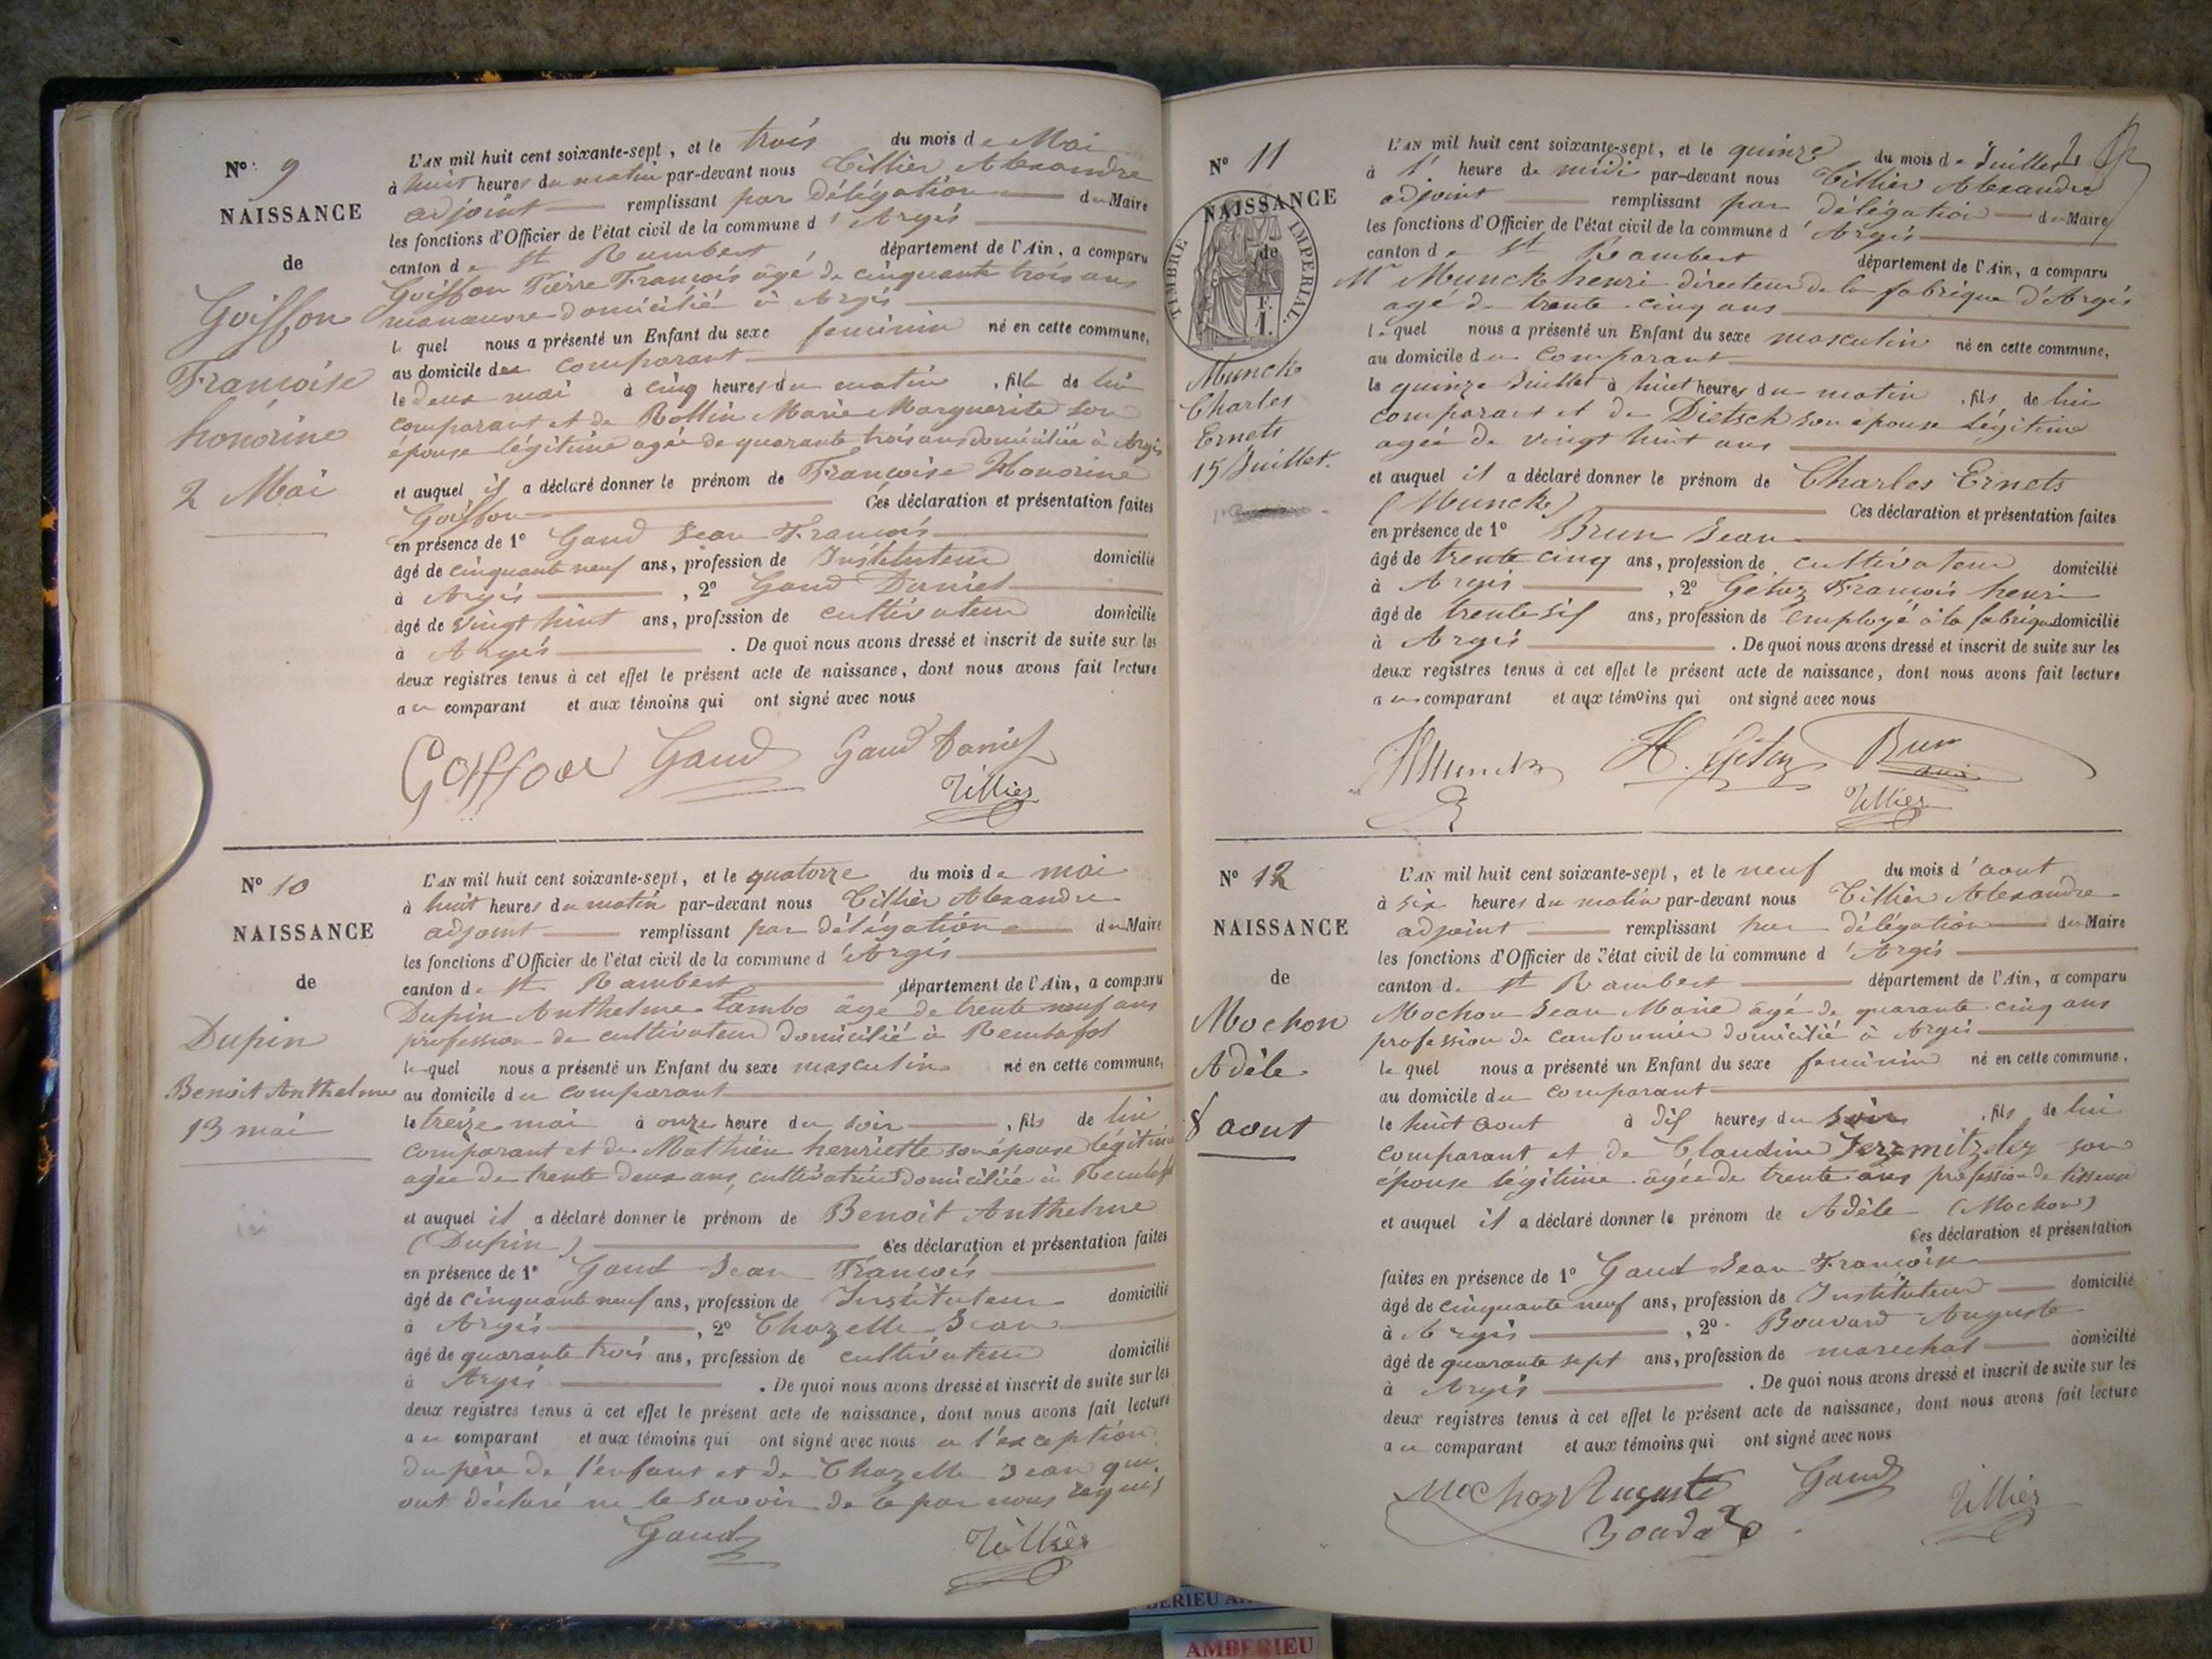 N° 9
NAISSANCE
de
Goiffon
Françoise
honorine
2 Mai
L'AN mil huit cent soixante-sept, et le trois du mois de Mai
à huit heures du matin par-devant nous Tillier Alexandre
adjoint remplissant par délégation du Maire
les fonctions d'Officier de l'état civil de la commune d'Argis
canton de St Rambert, département de l'Ain, a comparu
Goiffon Pierre François âgé de cinquante trois ans
manœuvre domicilié à Argis
lequel nous a présenté un Enfant du sexe feminin né en cette commune,
au domicile du comparant
le deux mai à cinq heures du matin, fille de lui
comparant et de Rollin Marie Marguerite son
épouse légitime agée de quarante trois ans domiciliée à Argis
et auquel il a déclaré donner le prénom de Françoise Honorine
Goiffon Ces déclaration et présentation faites
en présence de 1° Gaud Jean François
âgé de cinquante neuf ans, profession de Instituteur domicilié
à Argis, 2° Gaud Daniel
âgé de vingt huit ans, profession de cultivateur domicilié
à Argis. De quoi nous avons dressé et inscrit de suite sur les
deux registres tenus à cet effet le présent acte de naissance, dont nous avons fait lecture
au comparant et aux témoins qui ont signé avec nous
Goiffon Gaud Gaud Daniel
Tillier
N° 10
NAISSANCE
de
Dupin
Benoit Anthelme
13 mai
L'AN mil huit cent soixante-sept, et le quatorze du mois de mai
à huit heures du matin par-devant nous Tillier Alexandre
adjoint remplissant par délégation du Maire
les fonctions d'Officier de l'état civil de la commune d'Argis
canton de St Rambert département de l'Ain, a comparu
Dupin Anthelme âgé de trente neuf ans
profession de cultivateur domicilié à
lequel nous a présenté un Enfant du sexe masculin né en cette commune,
au domicile du comparant
le treize mai à onze heure du soir, fils de lui
comparant et de Mathieu henriette son épouse légitime
agée de trente deux ans, cultivatrice domiciliée à
et auquel il a déclaré donner le prénom de Benoit Anthelme
(Dupin) Ces déclaration et présentation faites
en présence de 1° Gaud Jean François
âgé de cinquante neuf ans, profession de Instituteur domicilié
à Argis, 2° Chazelle Jean
âgé de quarante trois ans, profession de cultivateur domicilié
à Argis. De quoi nous avons dressé et inscrit de suite sur les
deux registres tenus à cet effet le présent acte de naissance, dont nous avons fait lecture
au comparant et aux témoins qui ont signé avec nous a l'exception
du père de l'enfant et de Chazelle Jean qui
ont déclaré ne le savoir de ce par nous requis
Gaud Tillier
N° 11
NAISSANCE
de
TIMBRE IMPERIAL
F.
1.
Munck
Charles
Ernets
15 Juillet.
L'AN mil huit cent soixante-sept, et le quinze du mois de Juillet
à 1' heure de midi par-devant nous Tillier Alexandre
adjoint remplissant par délégation du Maire
les fonctions d'Officier de l'état civil de la commune d'Argis
canton de St Rambert département de l'Ain, a comparu
Mr Munck henri directeur de la fabrique d'Argis
agé de trente cinq ans
lequel nous a présenté un Enfant du sexe masculin né en cette commune,
au domicile du comparant
le quinze Juillet à huit heures du matin, fils de lui
comparant et de Dietsch son épouse légitime
agée de vingt huit ans
et auquel il a déclaré donner le prénom de Charles Ernets
(Munck) Ces déclaration et présentation faites
en présence de 1° Brun Jean
âgé de trente cinq ans, profession de cultivateur domicilié
à Argis, 2° Getaz François henri
âgé de trente sif ans, profession de employé à la fabrique domicilié
à Argis. De quoi nous avons dressé et inscrit de suite sur les
deux registres tenus à cet effet le présent acte de naissance, dont nous avons fait lecture
au comparant et aux témoins qui ont signé avec nous
HMunck H. Getaz Brun
Tillier
N° 12
NAISSANCE
de
Mochon
Adèle
8 aout
L'AN mil huit cent soixante-sept, et le neuf du mois d'aout
à six heures du matin par-devant nous Tillier Alexandre
adjoint remplissant par délégation du Maire
les fonctions d'Officier de l'état civil de la commune d'Argis
canton de St Rambert département de l'Ain, a comparu
Mochon Jean Marie âgé de quarante cinq ans
profession de cantonnier domicilié à Argis
lequel nous a présenté un Enfant du sexe feminin né en cette commune,
au domicile du comparant
le huit aout à dif heures du soir, fils de lui
comparant et de Claudine son
épouse légitime âgée de trente ans profession de tisseuse
et auquel il a déclaré donner le prénom de Adèle (Mochon)
Ces déclaration et présentation
faites en présence de 1° Gaud Jean François
âgé de cinquante neuf ans, profession de Instituteur domicilié
à Argis, 2° Bouvard Auguste
âgé de quarante sept ans, profession de marechal domicilié
à Argis. De quoi nous avons dressé et inscrit de suite sur les
deux registres tenus à cet effet le présent acte de naissance, dont nous avons fait lecture
au comparant et aux témoins qui ont signé avec nous
Mochon Auguste Gaud Tillier
AMBERIEU